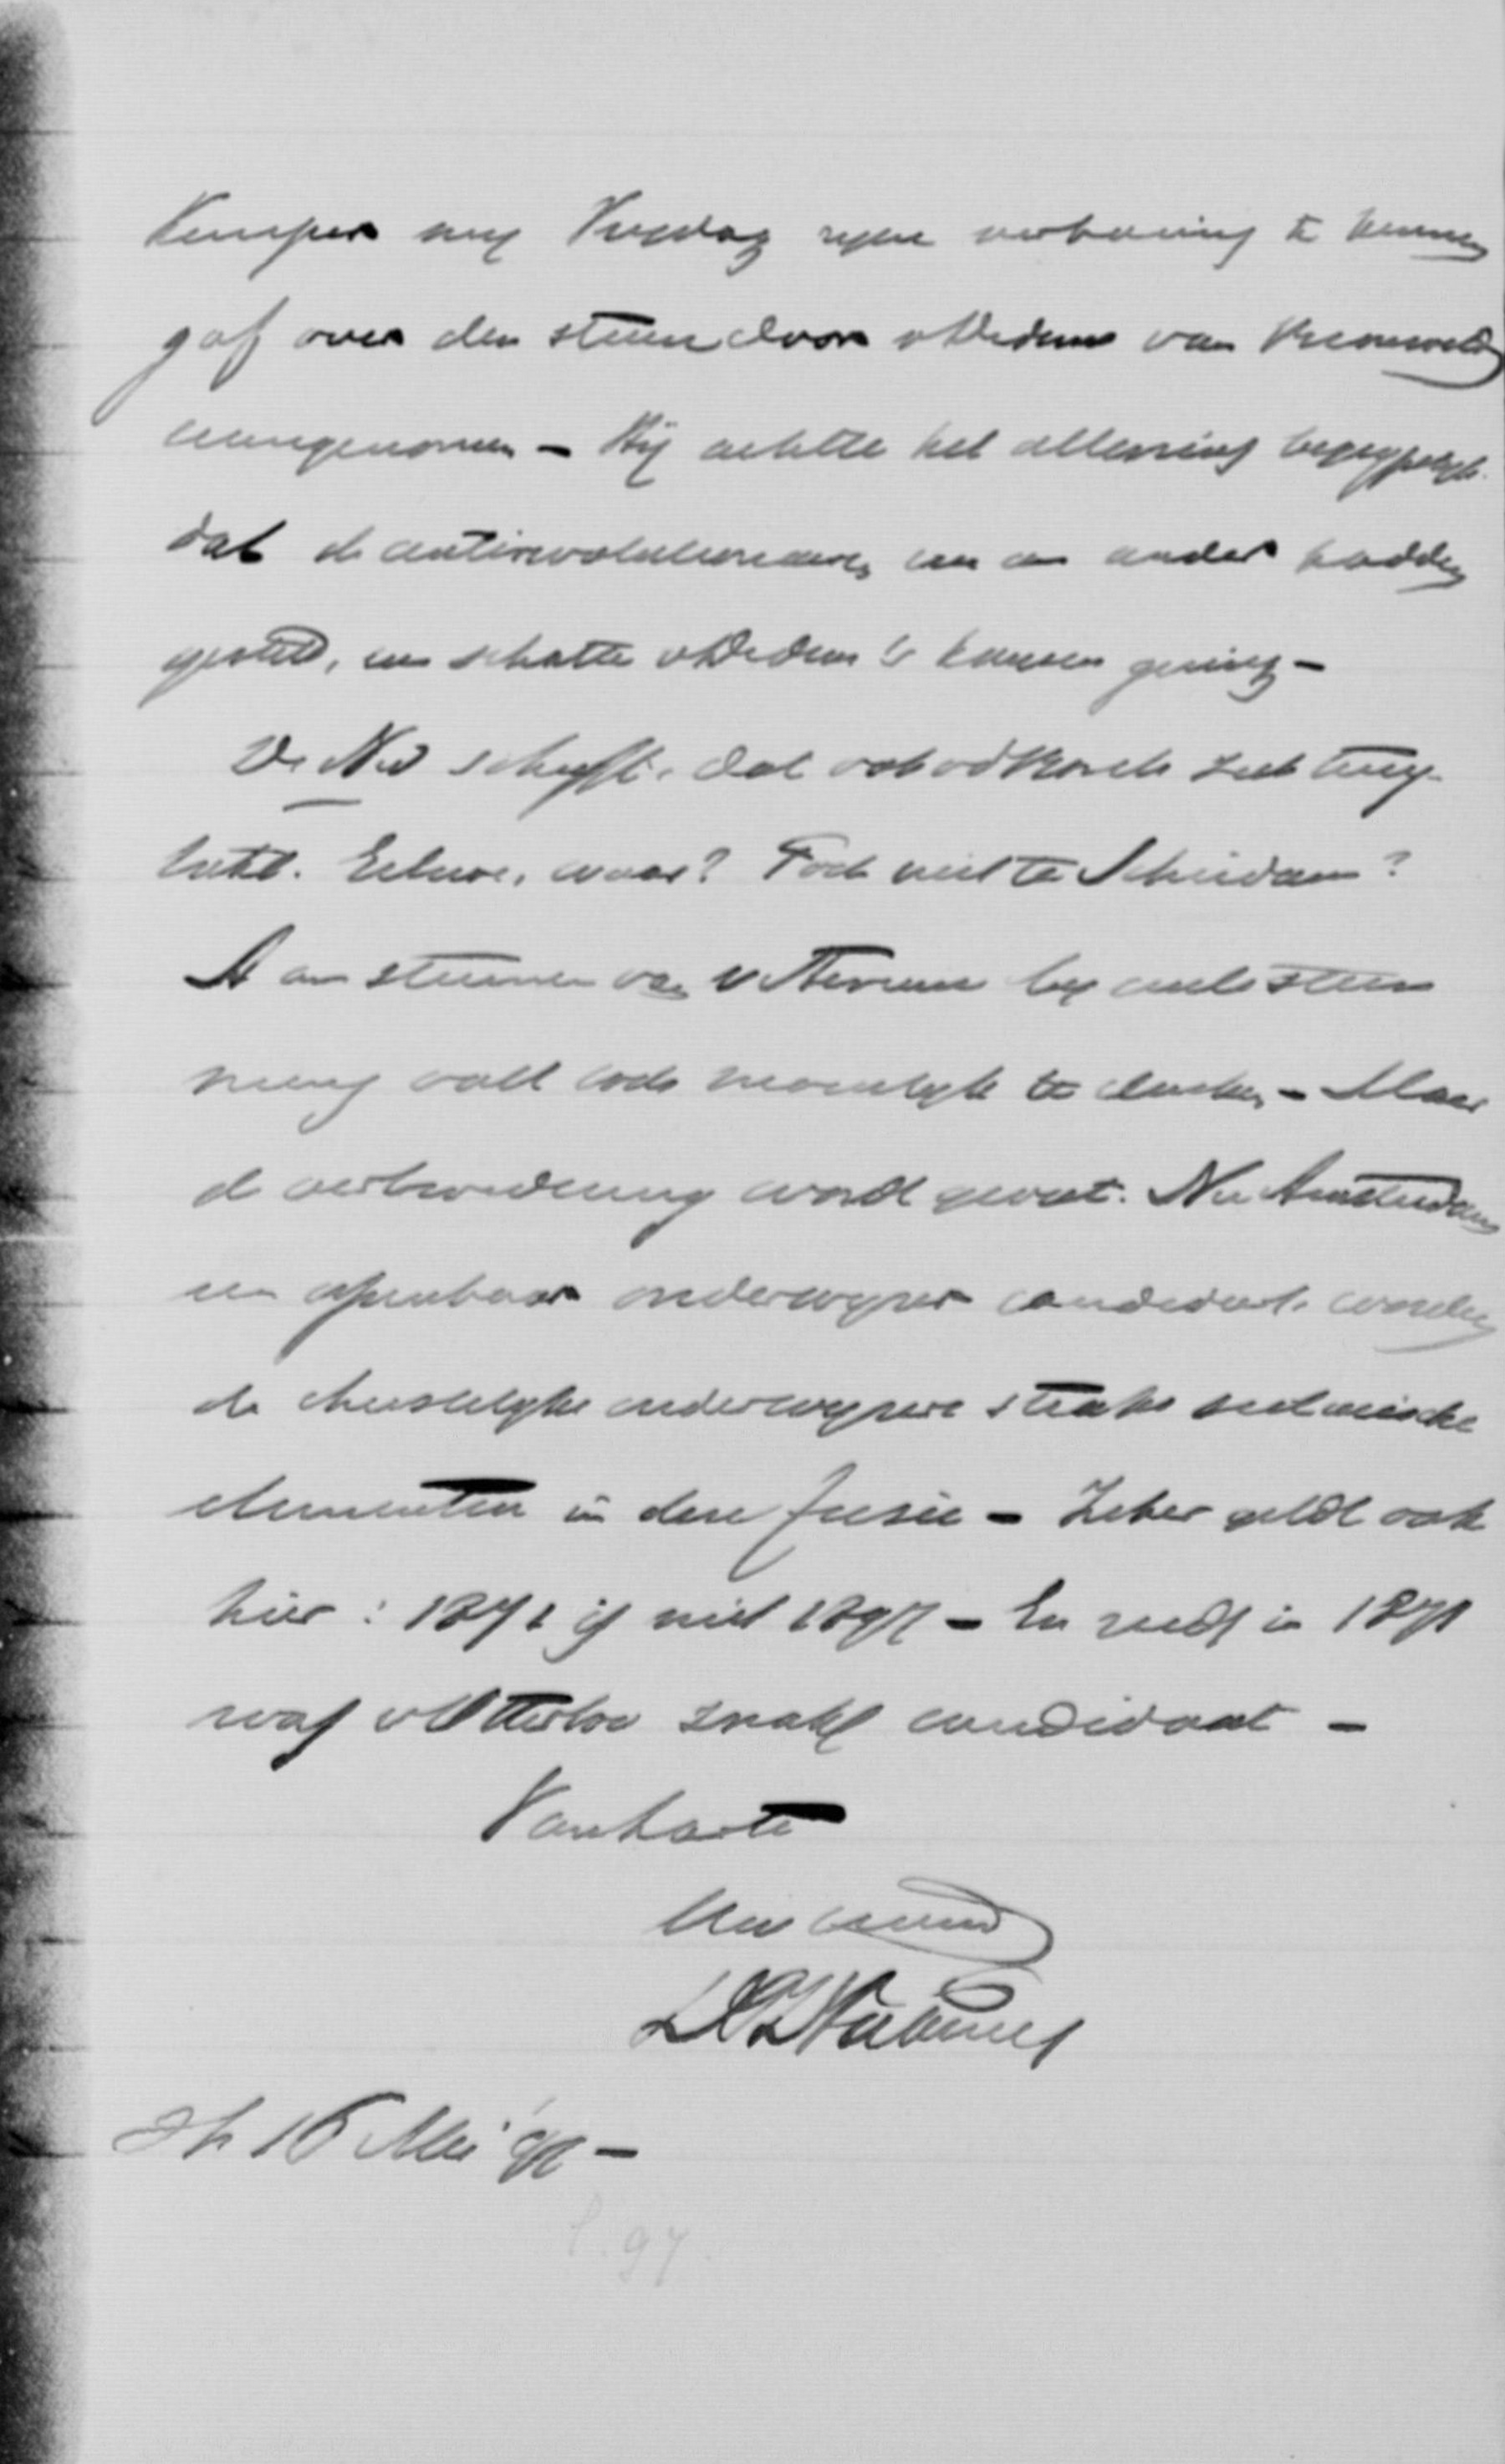 Kemper mij Vrijdag zijne verbazing te kennen
gaf over den steun door v Dedem van
aangenomen – Hij achtte het alleszins begrijpelijk
dat de antirevolutionairen een ander hadden
gesteld, en schatte v Dedem's kansen gering –
De Ned schrijft, dat ook vd zich terug
trekt. Eilieve, waar? Toch niet te Schiedam?
Aan steunen van v bij eerste stem
ming valt toch moeielijk te denken – Maar
de verbroedering wordt groot. Nu Amsterdam
een openbaar onderwijzer candidaat. worden
de christelijke onderwijzers straks
elementen in deze fusie – Zeker geldt ook
hier: 1871 is niet 1897 – En reeds in 1871
was v Otterloo zwak candidaat –
Van harte
Uw vriend

Dh 16 Mei 97 –
97.